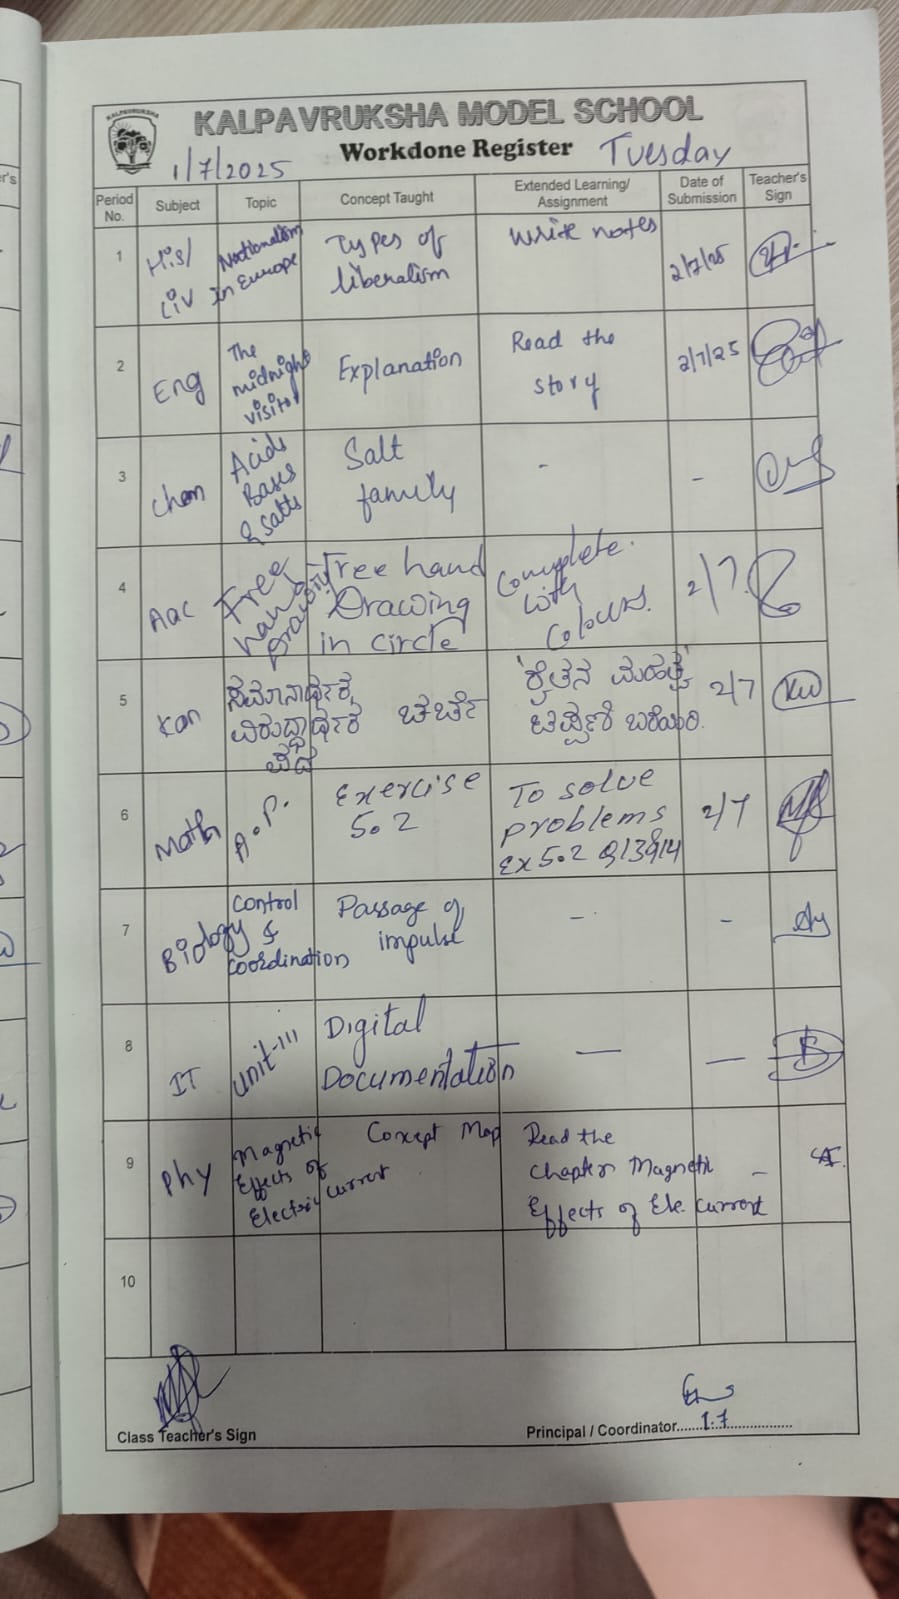 KALPAVRUKSHA
KALPAVRUKSHA MODEL SCHOOL
Workdone Register Tuesday
1/7/2025
Period No. Subject Topic Concept Taught Extended Learning/ Assignment Date of Submission Teacher's Sign
1 His/ Civ Nationalism in Europe Types of liberalism Write notes 2/7/25
2 Eng The midnight visitor Explanation Read the story 2/7/25
3 Chem Acids Bases & Salts Salt family - -
4 Aac Free hand Drawing Free hand Drawing in circle Complete with Colours. 2/7
5 Kan ಸಮಾನಾರ್ಥಕ ವಿರುದ್ಧಾರ್ಥಕ ಪದ ಚರ್ಚೆ ಟಿಪ್ಪಣಿ ಬರೆಯಿರಿ. 2/7
6 Math A.P. Exercise 5.2 To solve problems Ex 5.2 2/7
7 Biology Control & Coordination Passage of impulse - -
8 IT Unit-III Digital Documentation — —
9 Phy Magnetic Effects of Electric Current Concept Map Read the Chapter Magnetic Effects of Ele. Current -
10
Class Teacher's Sign
Principal / Coordinator 1.7